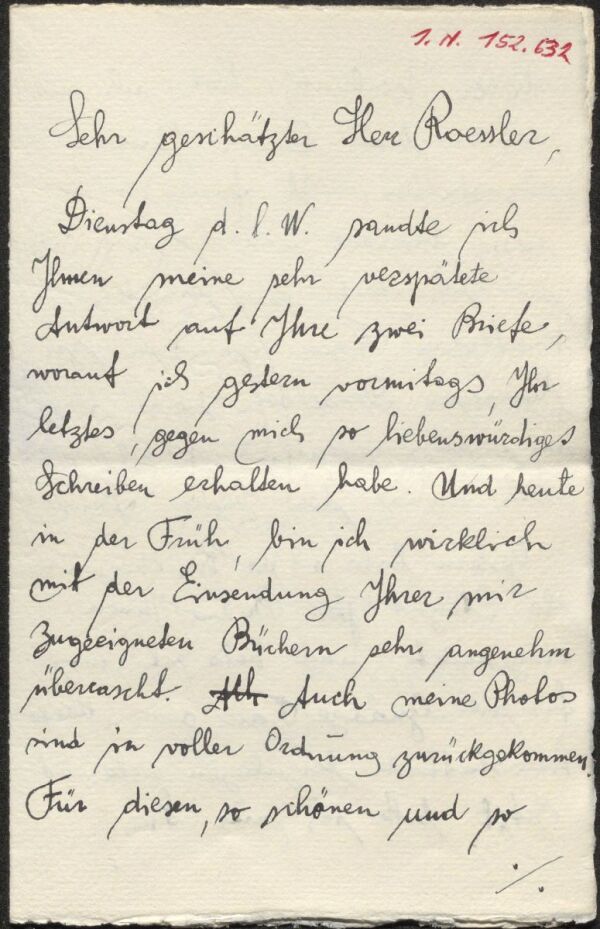 I.N. 152.632
Sehr geschätzter Herr Roessler,
Dienstag d. l. W. sandte ich
Ihnen meine sehr verspätete
Antwort auf Ihre zwei Briefe,
worauf ich gestern vormitags, Ihr
letztes, gegen mich so liebenswürdiges
Schreiben erhalten habe. Und heute
in der Früh, bin ich wirklich
mit der Einsendung Ihrer mir
zugeeigneten Büchern sehr angenehm
überrascht. Auch meine Photos
sind in voller Ordnung zurückgekommen.
Für diesen, so schönen und so
./.